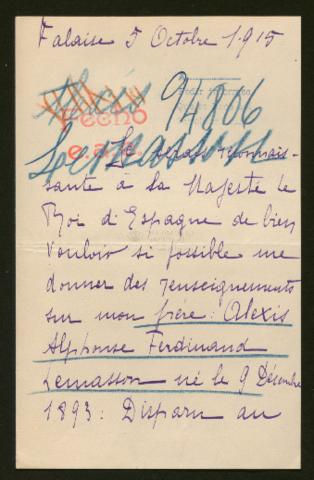 Falaise 5 Octobre 1915
Alexis
94806
FECHO
Lemasson
Je serais reconnais-
sante à Sa Majesté le
Roi d'Espagne de bien
vouloir si possible me
donner des renseignements
sur mon frère : Alexis
Alphonse Ferdinand
Lemasson né le 9 Décembre
1893 : Disparu au